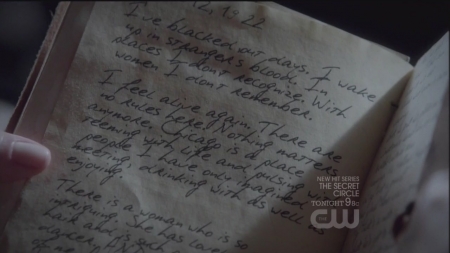 12. 1. 22
I've blacked out days. I wake
up in strangers blood. In
places I don't recognize. With
women I don't remember.
I feel alive again. There are
no rules here. Nothing matters
anymore. Chicago is a place
teeming with life and pulsing with
people I have only imagined
meeting, drinking with as well as
enjoying.
There is a woman who is so
She has
NEW HIT SERIES
THE SECRET
CIRCLE
TONIGHT 9/8c
THE CW